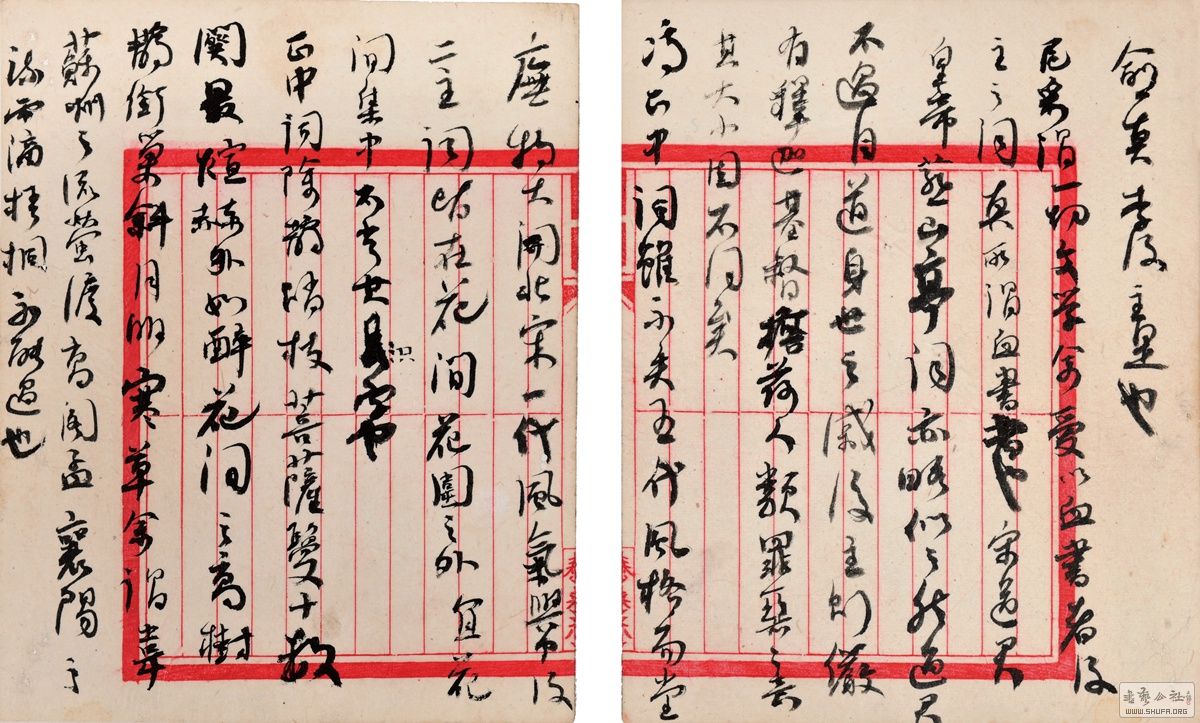 愈真李後主是也
尼采謂一切文學余愛以血書者後
主之詞真所謂血書者也宋道君
皇帝燕山亭詞亦略似之然道君
不過自道身世之感後主則儼
有釋迦基督擔荷人類罪惡之意
其大小固不同矣
馮正中詞雖不失五代風格而堂
廡特大開北宋一代風氣與中後
二主詞皆在花間范圍之外宜花
間集中不也
正中詞除鵲踏枝菩薩蠻十數
闋最煊赫外如醉花間之高樹
鵲銜巢斜月明寒草余謂韋
蘇州之流螢渡高閣孟襄陽之
疏雨滴梧桐不能過也
書藝公社
WWW.SHUFA.ORG